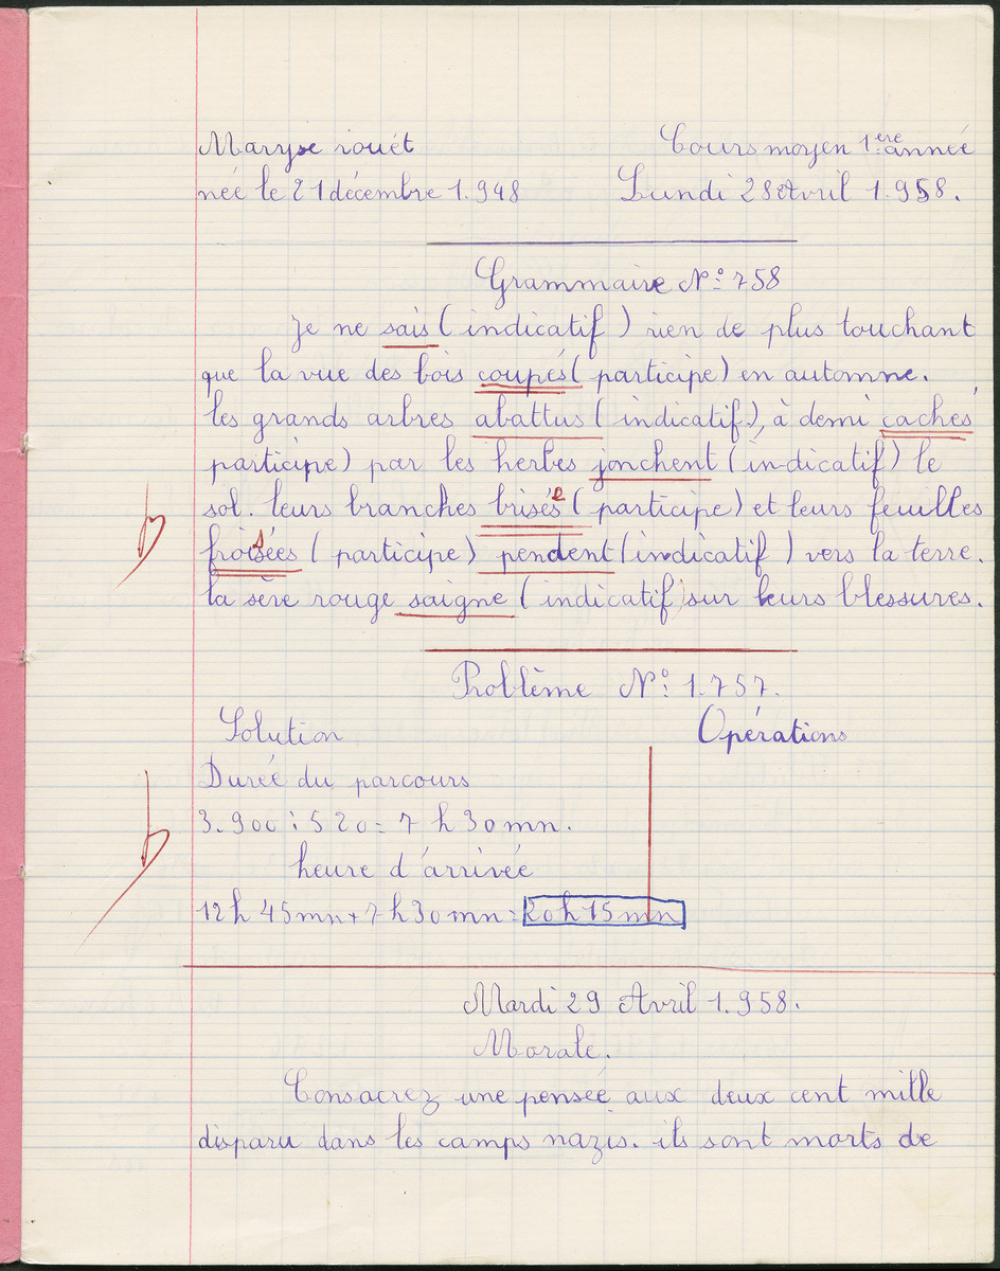 Maryse rouét Cours moyen 1ère année
née le 21 décembre 1.948 Lundi 28 Avril 1.958.
Grammaire N° : 758
Je ne sais ( indicatif ) rien de plus touchant
que la vue des bois coupés ( participe ) en automne.
les grands arbres abattus ( indicatif ), à demi cachés
participe ) par les herbes jonchent ( in-dicatif ) le
sol. leurs branches brisées ( participe ) et leurs feuilles
froissées ( participe ) pendent ( indicatif ) vers la terre.
la sève rouge saigne ( indicatif ) sur leurs blessures.
Problème N° : 1.757.
Solution Opérations
Durée du parcours
3.900 : 520 = 7 h 30 mn.
heure d'arrivée
12 h 45 mn + 7 h 30 mn = 20 h 15 mn
Mardi 29 Avril 1.958.
Morale.
Consacrez une pensée aux deux cent mille
disparu dans les camps nazis. ils sont morts de
b
b